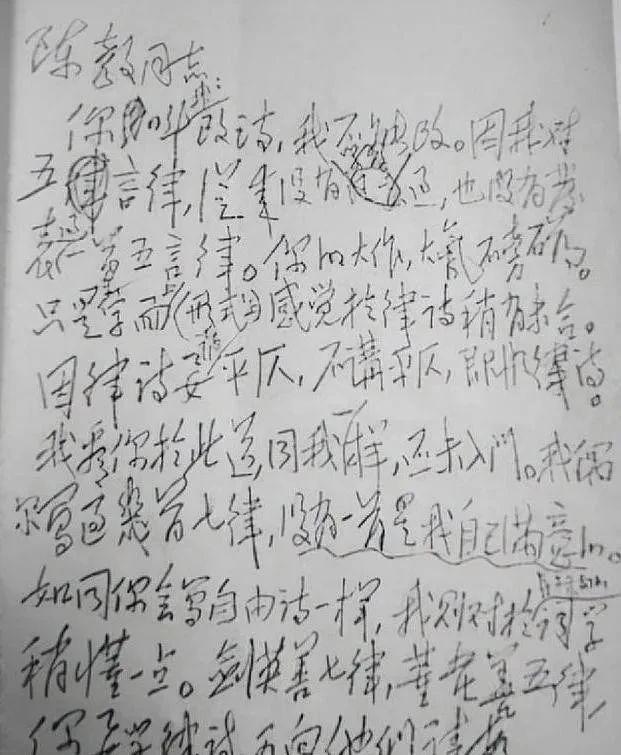 陈毅同志:
你叫我改诗,我不能改。因我对
五言律,从来没有学习过,也没有发
表过一首五言律。你的大作,大气磅礴。
只是在字面(形式)上感觉于律诗稍有未合。
因律诗要讲平仄,不讲平仄,即非律诗。
我看你于此道,同我一样,还未入门。我偶
尔写过几首七律,没有一首是我自己满意的。
如同你会写自由诗一样,我则对于长短句的词学
稍懂一点。剑英善七律,董老善五律,
你要学律诗,可向他们请教